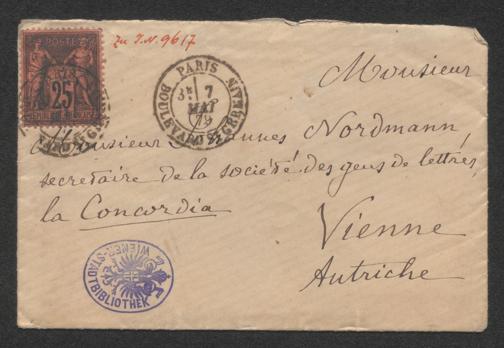 POSTES
25
REPUBLIQUE FRANÇAISE
Zu I.N. 9617
PARIS
7
MAI
79
BOULEVARD ST GERMAIN
Monsieur
Monsieur Nordmann,
secretaire de la société des gens de lettres
la Concordia
Vienne
Autriche
WIENER STADTBIBLIOTHEK